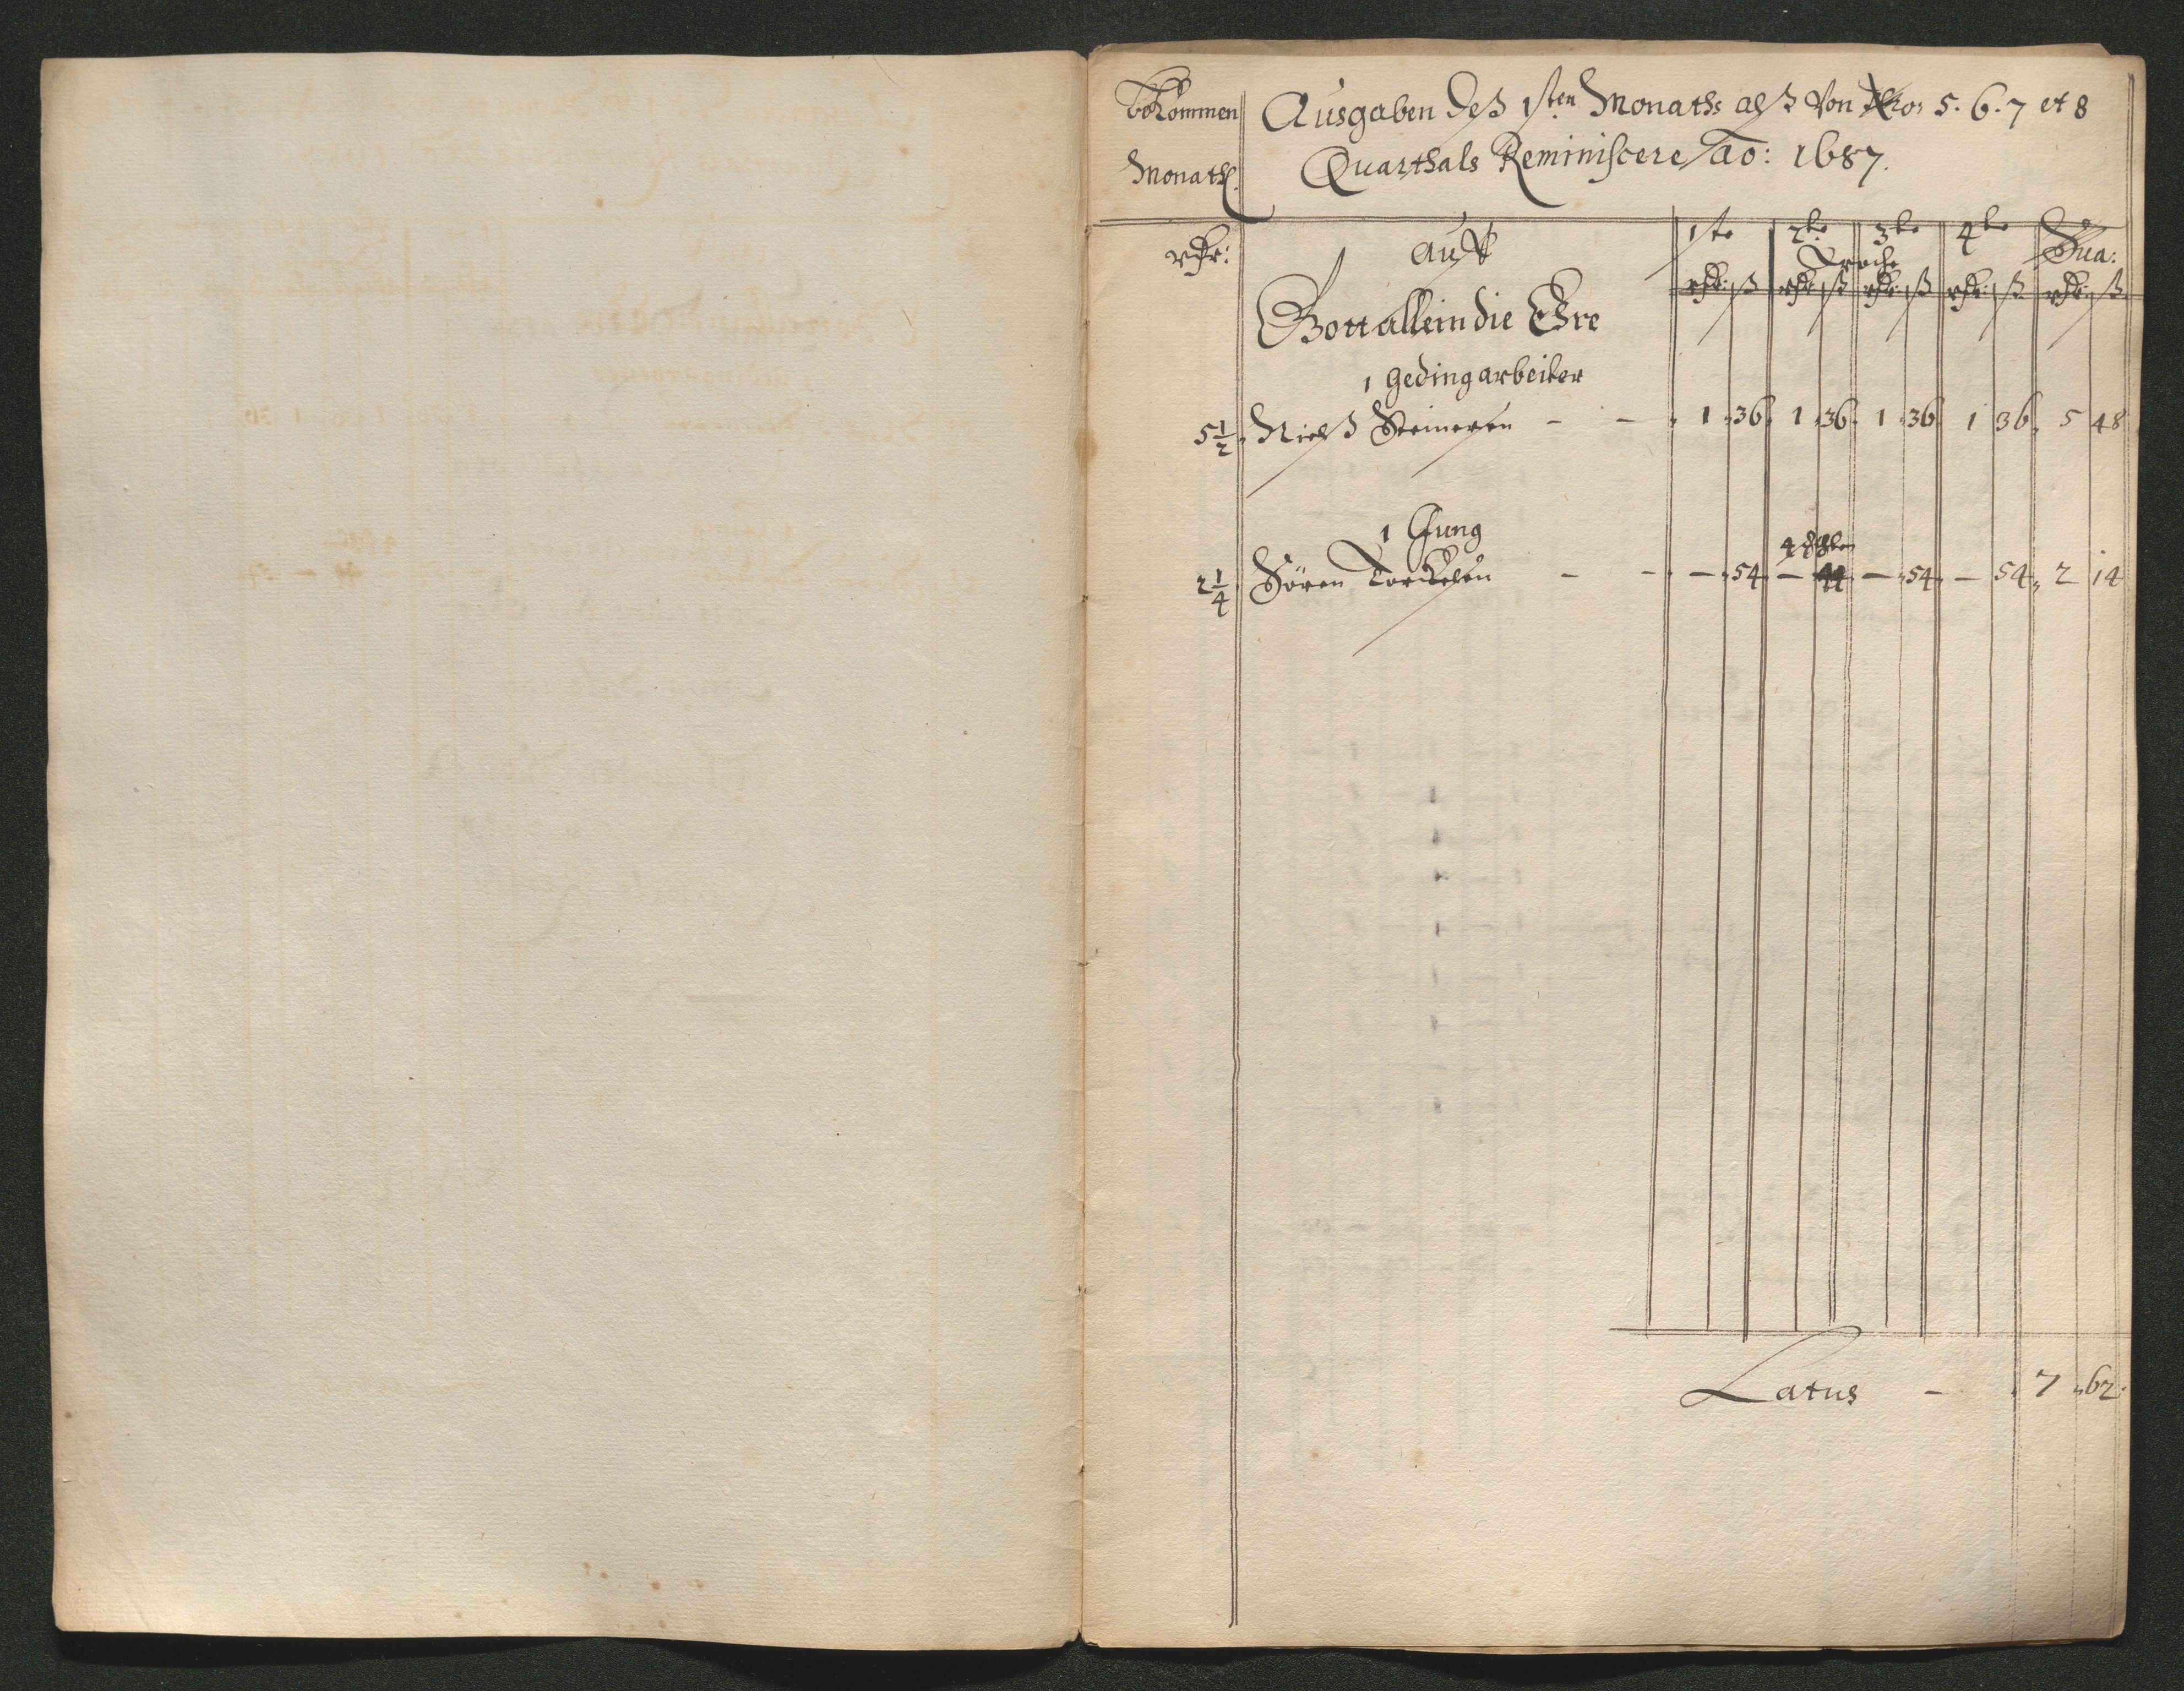 bekommen Ausgaben deß 1sten Monaths alß von No: 5. 6. 7 et 8
Monathl. Quarthals Reminiscere Ao: 1687.
rthr: auf 1te 2te 3te 4te Sua:
Woche
rthr: ß rthr: ß rthr: ß rthr: ß rthr: ß
Gott allein die Ehre
1 gedingarbeiter
5 1/2 Nielß - - 1 36 1 36 1 36 1 36 5 48
1 Jung
2 1/4 Sören Torckelsen - - - 54 - - 54 - 54 2 14
Latus - 7 62